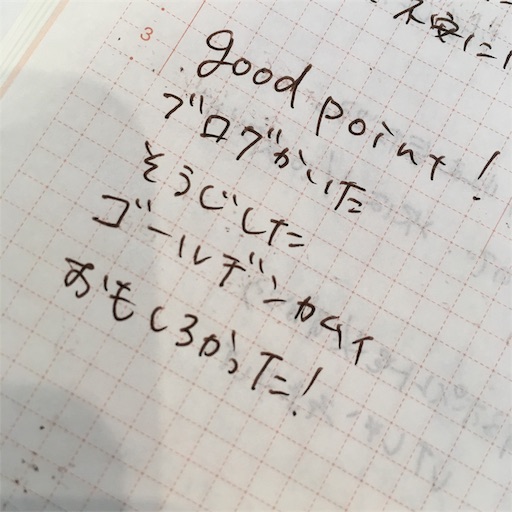 不安に
3
good point!
ブログかいた
そうじした
ゴールデンカムイ
おもしろかった!